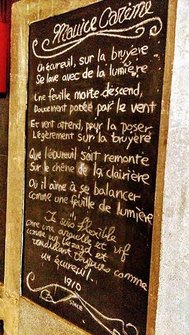 Maurice Carême
Un écureuil, sur la bruyère
Se lave avec de la lumière
Une feuille morte descend,
Doucement portée par le vent
Et vent attend, pour la poser
Légèrement sur la bruyère
Que l'écureuil soit remonté
Sur le chêne de la clairière
Où il aime à se balancer
Comme une feuille de lumière
Je suis flexible
comme une anguille et vif
comme un lézard et
travaillant toujours comme
un écureuil.
1910